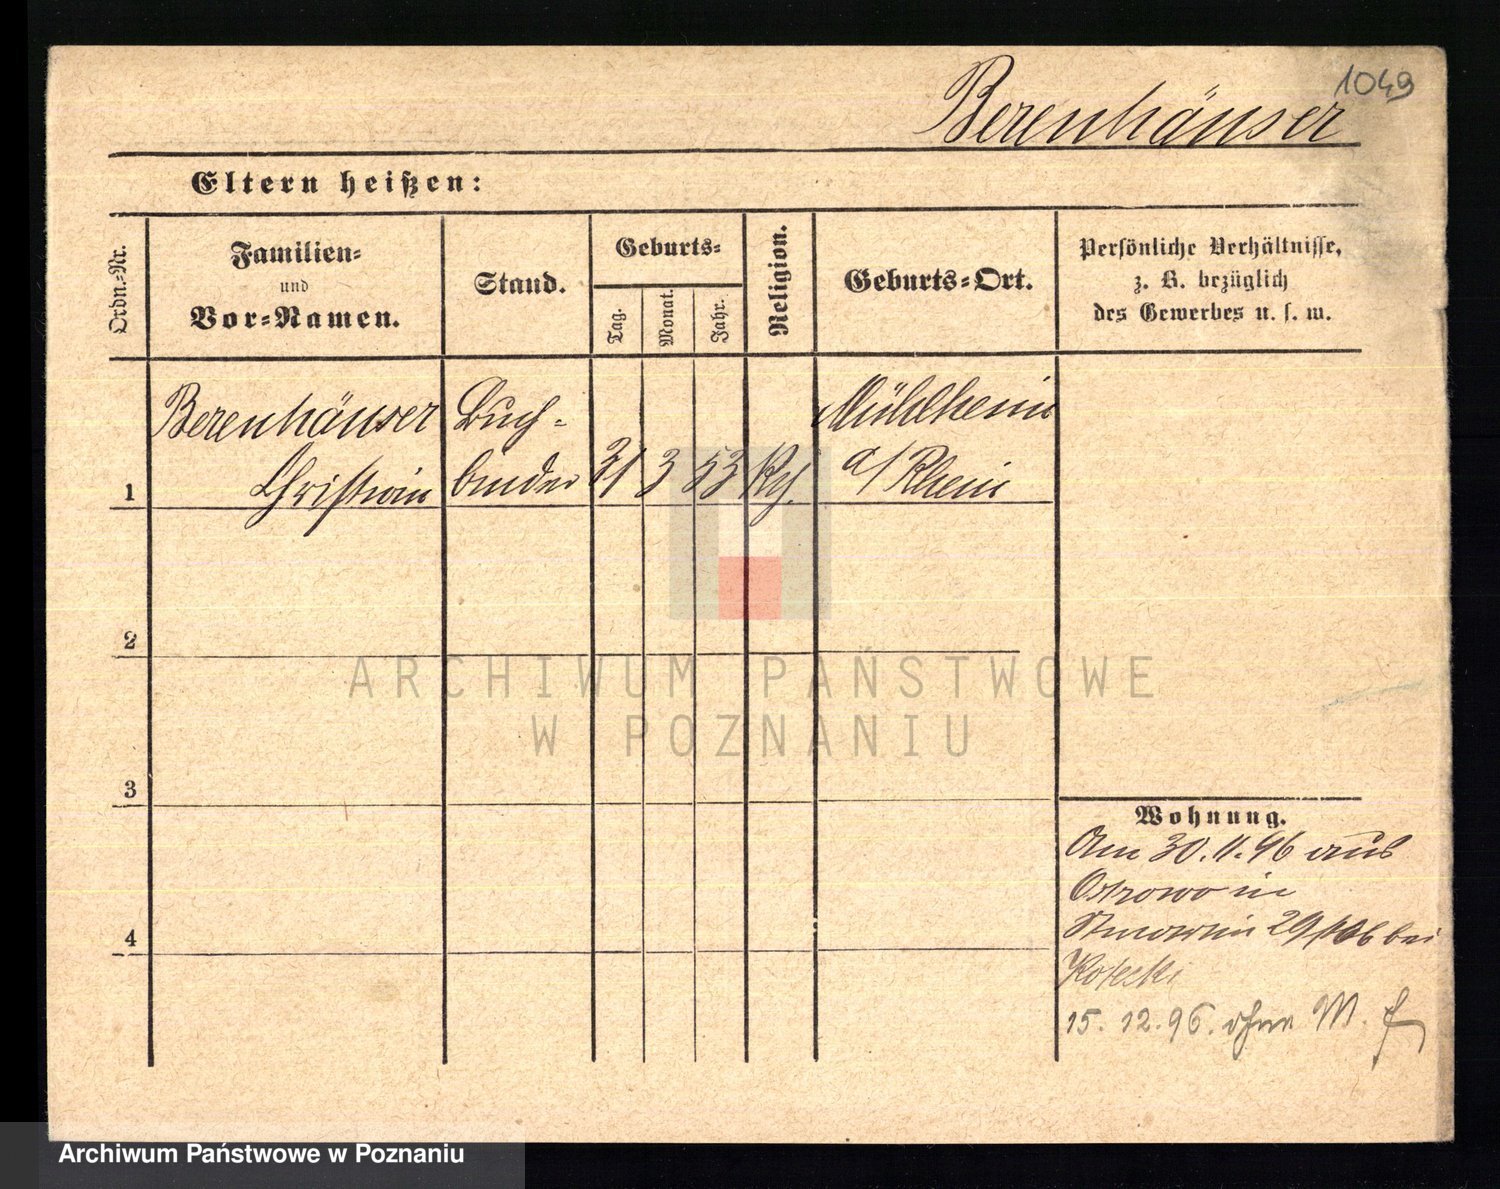 1049
Berenhäuser
Eltern heißen:
Ordn.-Nr.
Familien-
und
Vor-Namen.
Stand.
Geburts-
Tag.
Monat.
Jahr.
Religion.
Geburts-Ort.
Persönliche Verhältnisse,
z. B. bezüglich
des Gewerbes u. s. w.
1
Berenhäuser
Christian
Buch-
binder
31
3
53
Mühlheim
a/Rhein
2
3
4
Wohnung.
Am 30.11.96 aus
Ostrowo in
bei
Kotecki
15. 12. 96. ohne M.
ARCHIWUM PAŃSTWOWE
W POZNANIU
Archiwum Państwowe w Poznaniu